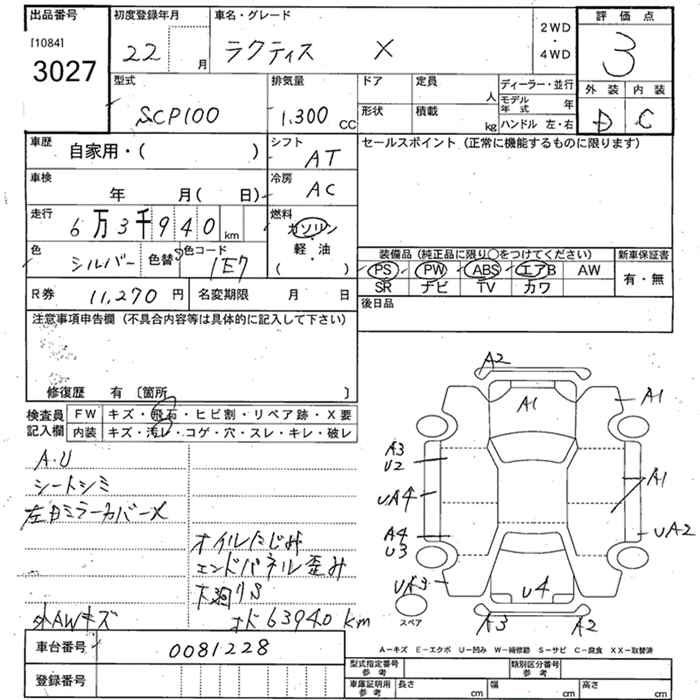 出品番号 初度登録年月 車名・グレード 2WD・4WD 評価点
[1084]
3027 22 月 ラクティス X 3
型式 排気量 ドア 定員 人 ディーラー・並行 外装 内装
SCP100 1,300 cc 形状 積載 kg モデル年式 年 D C
ハンドル 左・右
車歴 自家用・( ) シフト AT セールスポイント (正常に機能するものに限ります)
車検 年 月( 日) 冷房 AC
走行 6万3千940km 燃料 ガソリン
軽・油
( )
色 シルバー 色替 色コード 1E7
装備品 (純正品に限り○をつけてください) 新車保証書
PS PW ABS エアB AW 有・無
SR ナビ TV カワ
R券 11,270 円 名変期限 月 日 後日品
注意事項申告欄 (不具合内容等は具体的に記入して下さい)
修復歴 有 〔箇所 〕
検査員記入欄 FW キズ・飛石・ヒビ割・リペア跡・X要
内装 キズ・汚レ・コゲ・穴・スレ・キレ・破レ
A・U
シートシミ
左ドミラーカバーX
オイルにじみ
エンドパネル歪み
下廻りS
外AWキズ オド63940km
A2
A1 A1
A3
U2
UA4 A1
A4
U3 UA2
UA3 U4
スペア A3 A2
A-キズ E-エクボ U-凹み W-補修跡 S-サビ C-腐食 XX-取替済
車台番号 0081228
登録番号
型式指定番号 参考 類別区分番号 参考
車庫証明用 参考 長さ cm 幅 cm 高さ cm